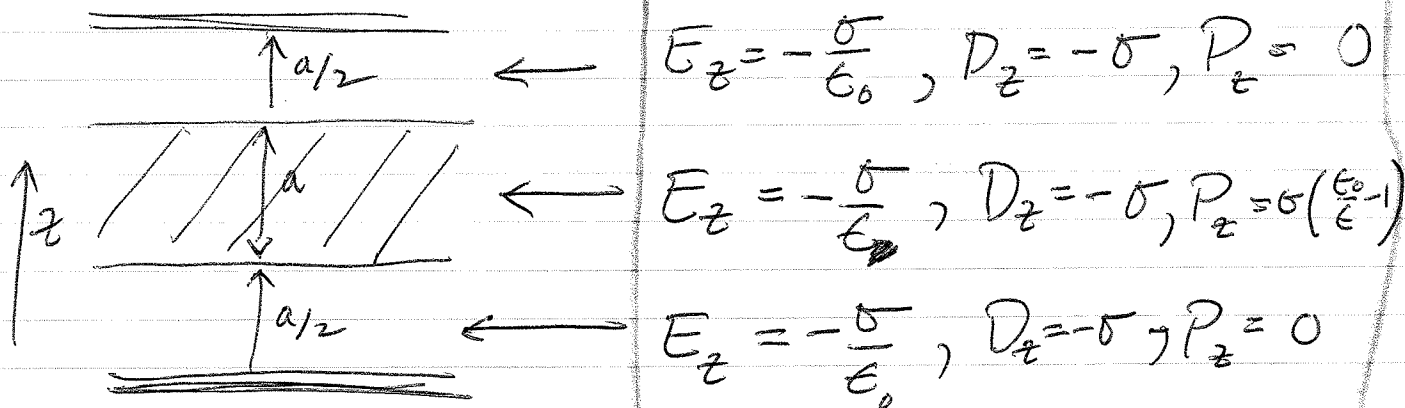 a/2 ← E_z = -σ/ε₀, D_z = -σ, P_z = 0
z a ← E_z = -σ/ε, D_z = -σ, P_z = σ(ε₀/ε - 1)
a/2 ← E_z = -σ/ε₀, D_z = -σ, P_z = 0